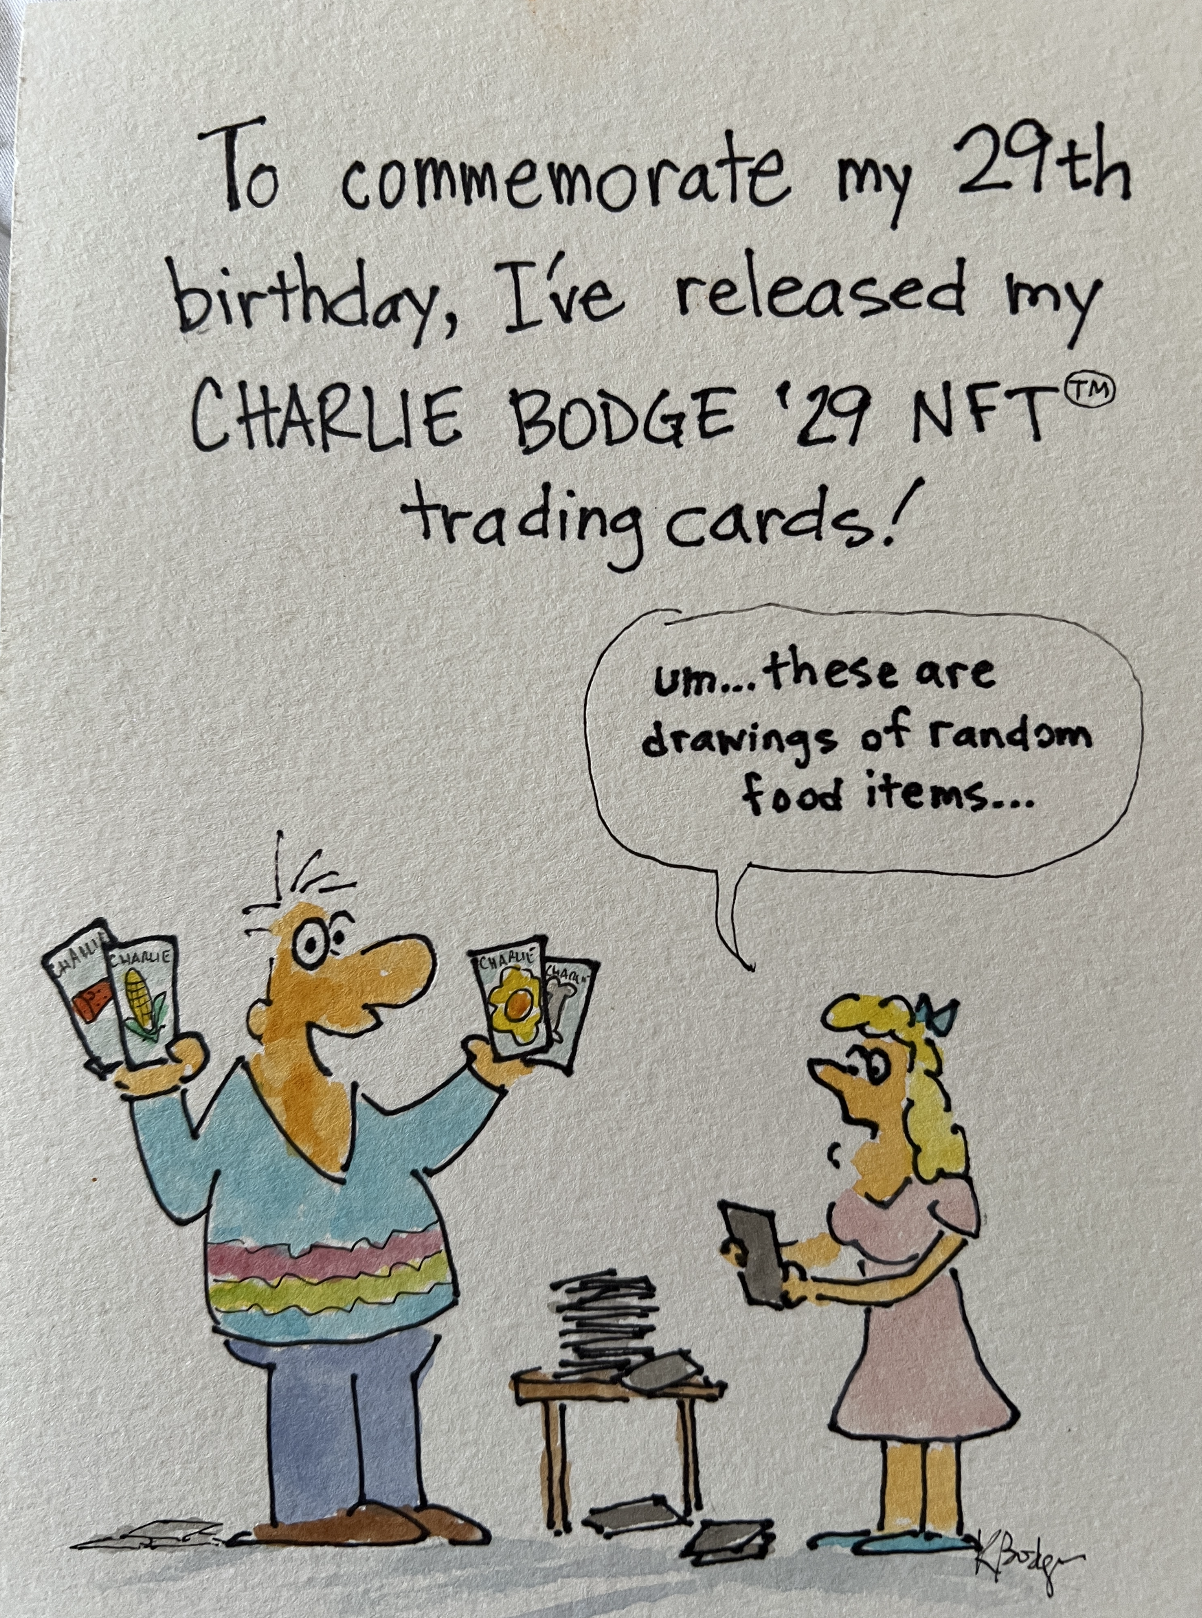 To commemorate my 29th
birthday, I've released my
CHARLIE BODGE '29 NFT™
trading cards!
um...these are
drawings of random
food items...
CHARLIE
CHARLIE
CHARLIE
CHARLIE
K Bodge